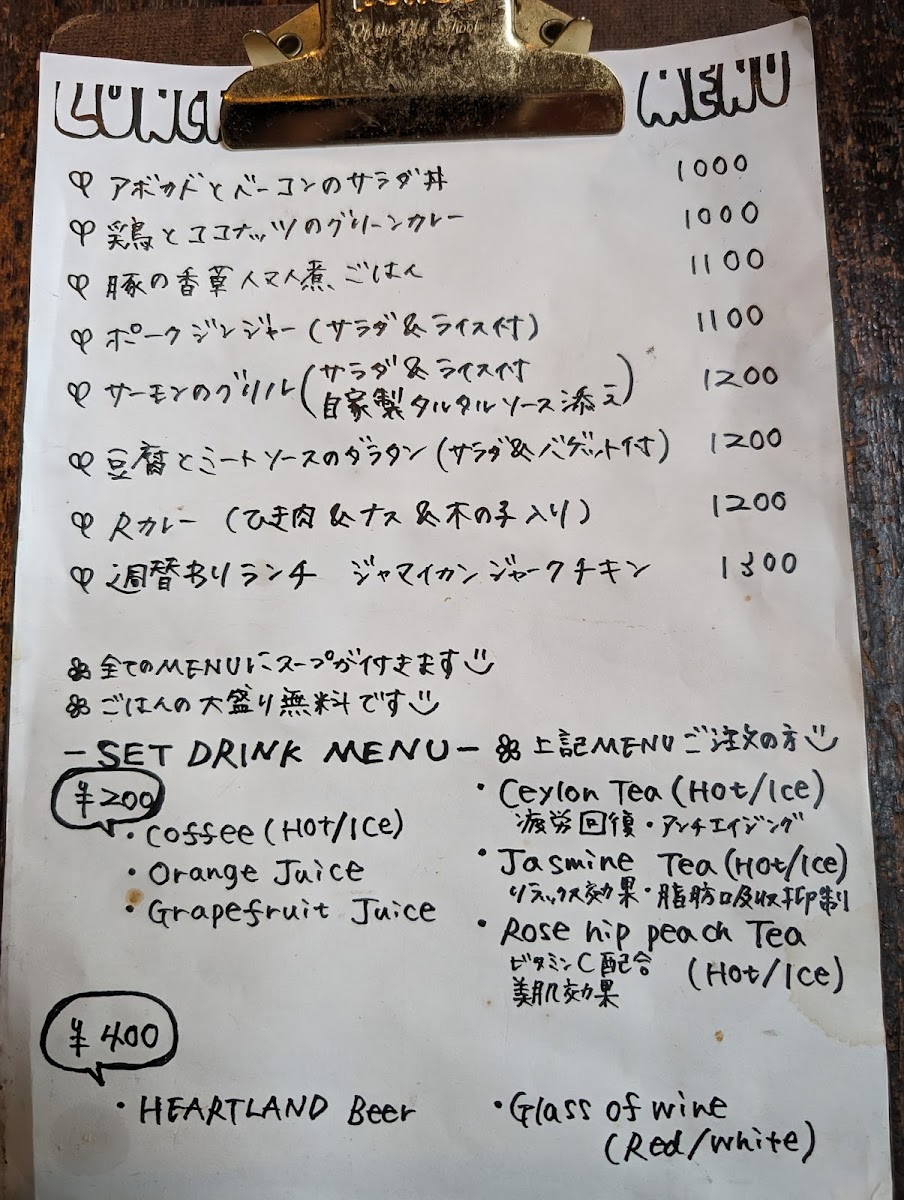 Of the Old School
LUNCH MENU
アボカドとベーコンのサラダ丼 1000
鶏とココナッツのグリーンカレー 1000
豚の香草トマト煮、ごはん 1100
ポークジンジャー(サラダ&ライス付) 1100
サーモンのグリル(サラダ&ライス付 1200
自家製タルタルソース添え)
豆腐とミートソースのグラタン(サラダ&バゲット付) 1200
R カレー (ひき肉&ナス&木の子入り) 1200
週替わりランチ ジャマイカンジャークチキン 1300
全てのMENUにスープが付きます
ごはんの大盛り無料です
-SET DRINK MENU- 上記MENUご注文の方
¥200
・Coffee (Hot/Ice)
・Orange Juice
・Grapefruit Juice
・Ceylon Tea (Hot/Ice)
疲労回復・アンチエイジング
・Jasmine Tea (Hot/Ice)
リラックス効果・脂肪吸収抑制
・Rose hip peach Tea
ビタミンC配合 (Hot/Ice)
美肌効果
¥400
・HEARTLAND Beer
・Glass of wine
(Red/white)